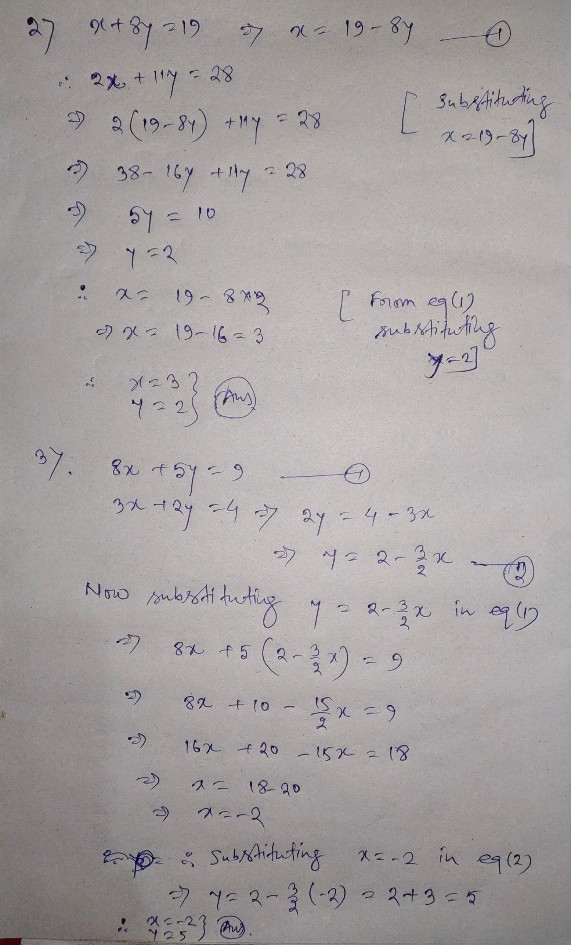 2) x + 8y = 19 ⇒ x = 19 - 8y —— ①
∴ 2x + 11y = 28
⇒ 2(19-8y) + 11y = 28 [Substituting x = 19-8y]
⇒ 38 - 16y + 11y = 28
⇒ 5y = 10
⇒ y = 2
∴ x = 19 - 8×2 [From eq(1) substituting y=2]
⇒ x = 19 - 16 = 3
∴ x = 3 }
y = 2 } Ans
3). 8x + 5y = 9 —— ①
3x + 2y = 4 ⇒ 2y = 4 - 3x
⇒ y = 2 - 3/2 x —— ②
Now substituting y = 2 - 3/2 x in eq(1)
⇒ 8x + 5(2 - 3/2 x) = 9
⇒ 8x + 10 - 15/2 x = 9
⇒ 16x + 20 - 15x = 18
⇒ x = 18-20
⇒ x = -2
∴ Substituting x = -2 in eq(2)
⇒ y = 2 - 3/2 (-2) = 2+3 = 5
∴ x = -2 }
y = 5 } Ans.